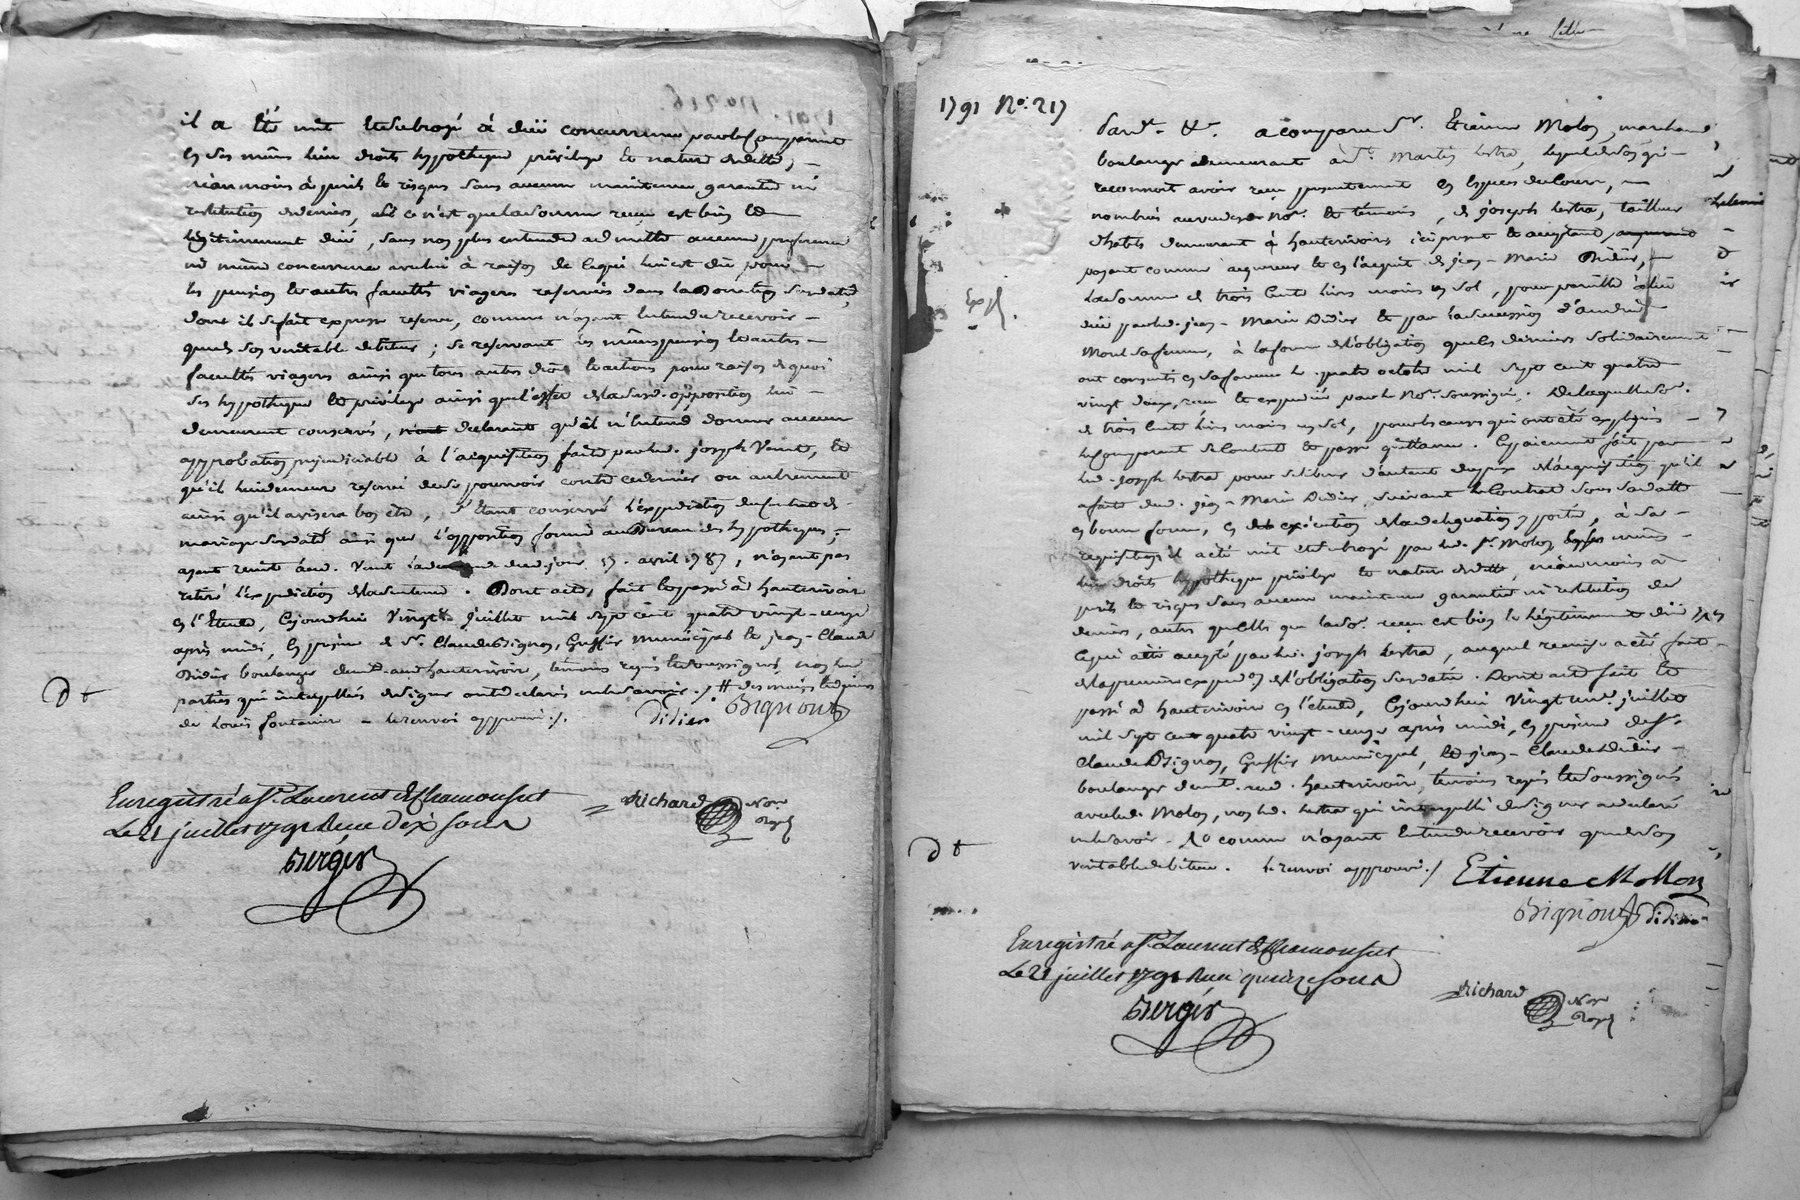 il a été mis et subrogé à düe concurrence par le comparant
en ses mêmes lieu droits hypotheque privilege et nature de dette, —
néanmoins à périls et risques sans aucune maintenue garantie ni
restitution de deniers, si ce n'est que la somme reçue est bien et
légitimement düe, sans non plus entendre admettre aucune préférence
ni même concurrence avec lui à raison de ce qui lui est dû pour —
les pension et autres facultés viageres reservées dans la donation susdatée
dont il se fait expresse reserve, comme n'ayant entendu recevoir —
que de son veritable debiteur ; se reservant les mêmes pension et autres —
facultés viageres ainsi que tous autres droits et actions pour raison de quoi
ses hypotheque et privilege ainsi que l'effet de la susd. opposition lui —
demeurent conservés, declarant qu'il n'entend donner aucune
approbation préjudiciable à l'acquisition faite par led. joseph Venet, et
qu'il lui demeure reservé de se pourvoir contre ce dernier ou autrement
ainsi qu'il avisera bon etre, s'étant conservé l'expedition du contrat de
mariage susdaté ainsi que l'opposition formée au Bureau des hypotheques,
ayant remis aud. Venet dud. jour 17. avril 1787, n'ayant pas
retiré l'expedition de la sentence. Dont acte, fait et passé à hauterivoire
en l'Etude, Cejourdhui Vingt juillet mil sept cent quatre vingt-onze
après midi, En présence de Sr. Claude Bignon, Greffier municipal et jean-Claude
Didier boulanger demt. aud. hauterivoire, temoins requis et soussignés, non les
parties qui interpellées de signer ont declaré ne le savoir ./ # des mains et deniers
de Louis fontanier — le renvoi approuvé ./.
Didier Bignon
Dt
Enregistré a St. Laurent de Chamousset
Le 21 juillet 1791 Recu dix sous
Bergér
Richard Nore.
Royal
1791 No. 217
Pardt. &c. a comparu Sr. Etienne Molon, marchand
boulanger demeurant à St. Martin Lestra, lequel de son gré —
reconnoit avoir reçu presentement en Especes de cours, —
nombrées au vu des Nores. et témoins, de joseph Lestra, tailleur
d'habits demeurant à hauterivoire ici present et acceptant,
payant comme acquereur et en l'acquit de jean-Marie Didier, —
La somme de trois Cents livres moins un sol, pour pareille à lui
düe par led. jean-Marie Didier et par la succession d'andrée
Mont sa femme, à la forme de l'obligation que les derniers solidairement
ont consenti en sa faveur le quatre octobre mil sept cent quatre
vingt deux, reçue et expediée par le Nore. soussigné. De laquelle so.
de trois Cents livres moins un sol, pour les causes qui ont été expliquées —
le comparant se contente et passe quittance. Ce paiement fait par
led. joseph Lestra pour se liberer d'autant du prix de l'acquisition qu'il
a faite dud. jean-Marie Didier, suivant le Contrat sous sa datte
en bonne forme, en execution de la delegation y portée, à sa —
requisition il a été mis et subrogé par led. Sr. Molon en ses mêmes —
lieu droits hypotheque privilege et nature de dette, néanmoins à
périls et risques sans aucune maintenue garantie ni restitution de
deniers, autres que celle que lad. so. reçue est bien et légitimement düe
ce qui a été accepté par led. joseph Lestra, auquel remise a été faite —
de la premiere expedon. de l'obligation susdatée. Dont acte fait et
passé à hauterivoire en l'étude, Cejourdhui Vingt un. juillet
mil sept cent quatre vingt-onze après midi, En présence de Sr.
Claude Bignon, Greffier municipal, et jean-Claude Didier —
boulanger demt. aud. hauterivoire, temoins requis et soussignés
avec led. Molon, non led. Lestra qui interpellé de signer a declaré
ne le savoir. comme n'ayant entendu recevoir que de son
veritable debiteur. le renvoi approuvé ./
Etienne Mollon
Bignon Didier
Expé.
Dt
Enregistré a St. Laurent de Chamousset
Le 21 juillet 1791 Recu quinze sous
Bergér
Richard Nore
Royal